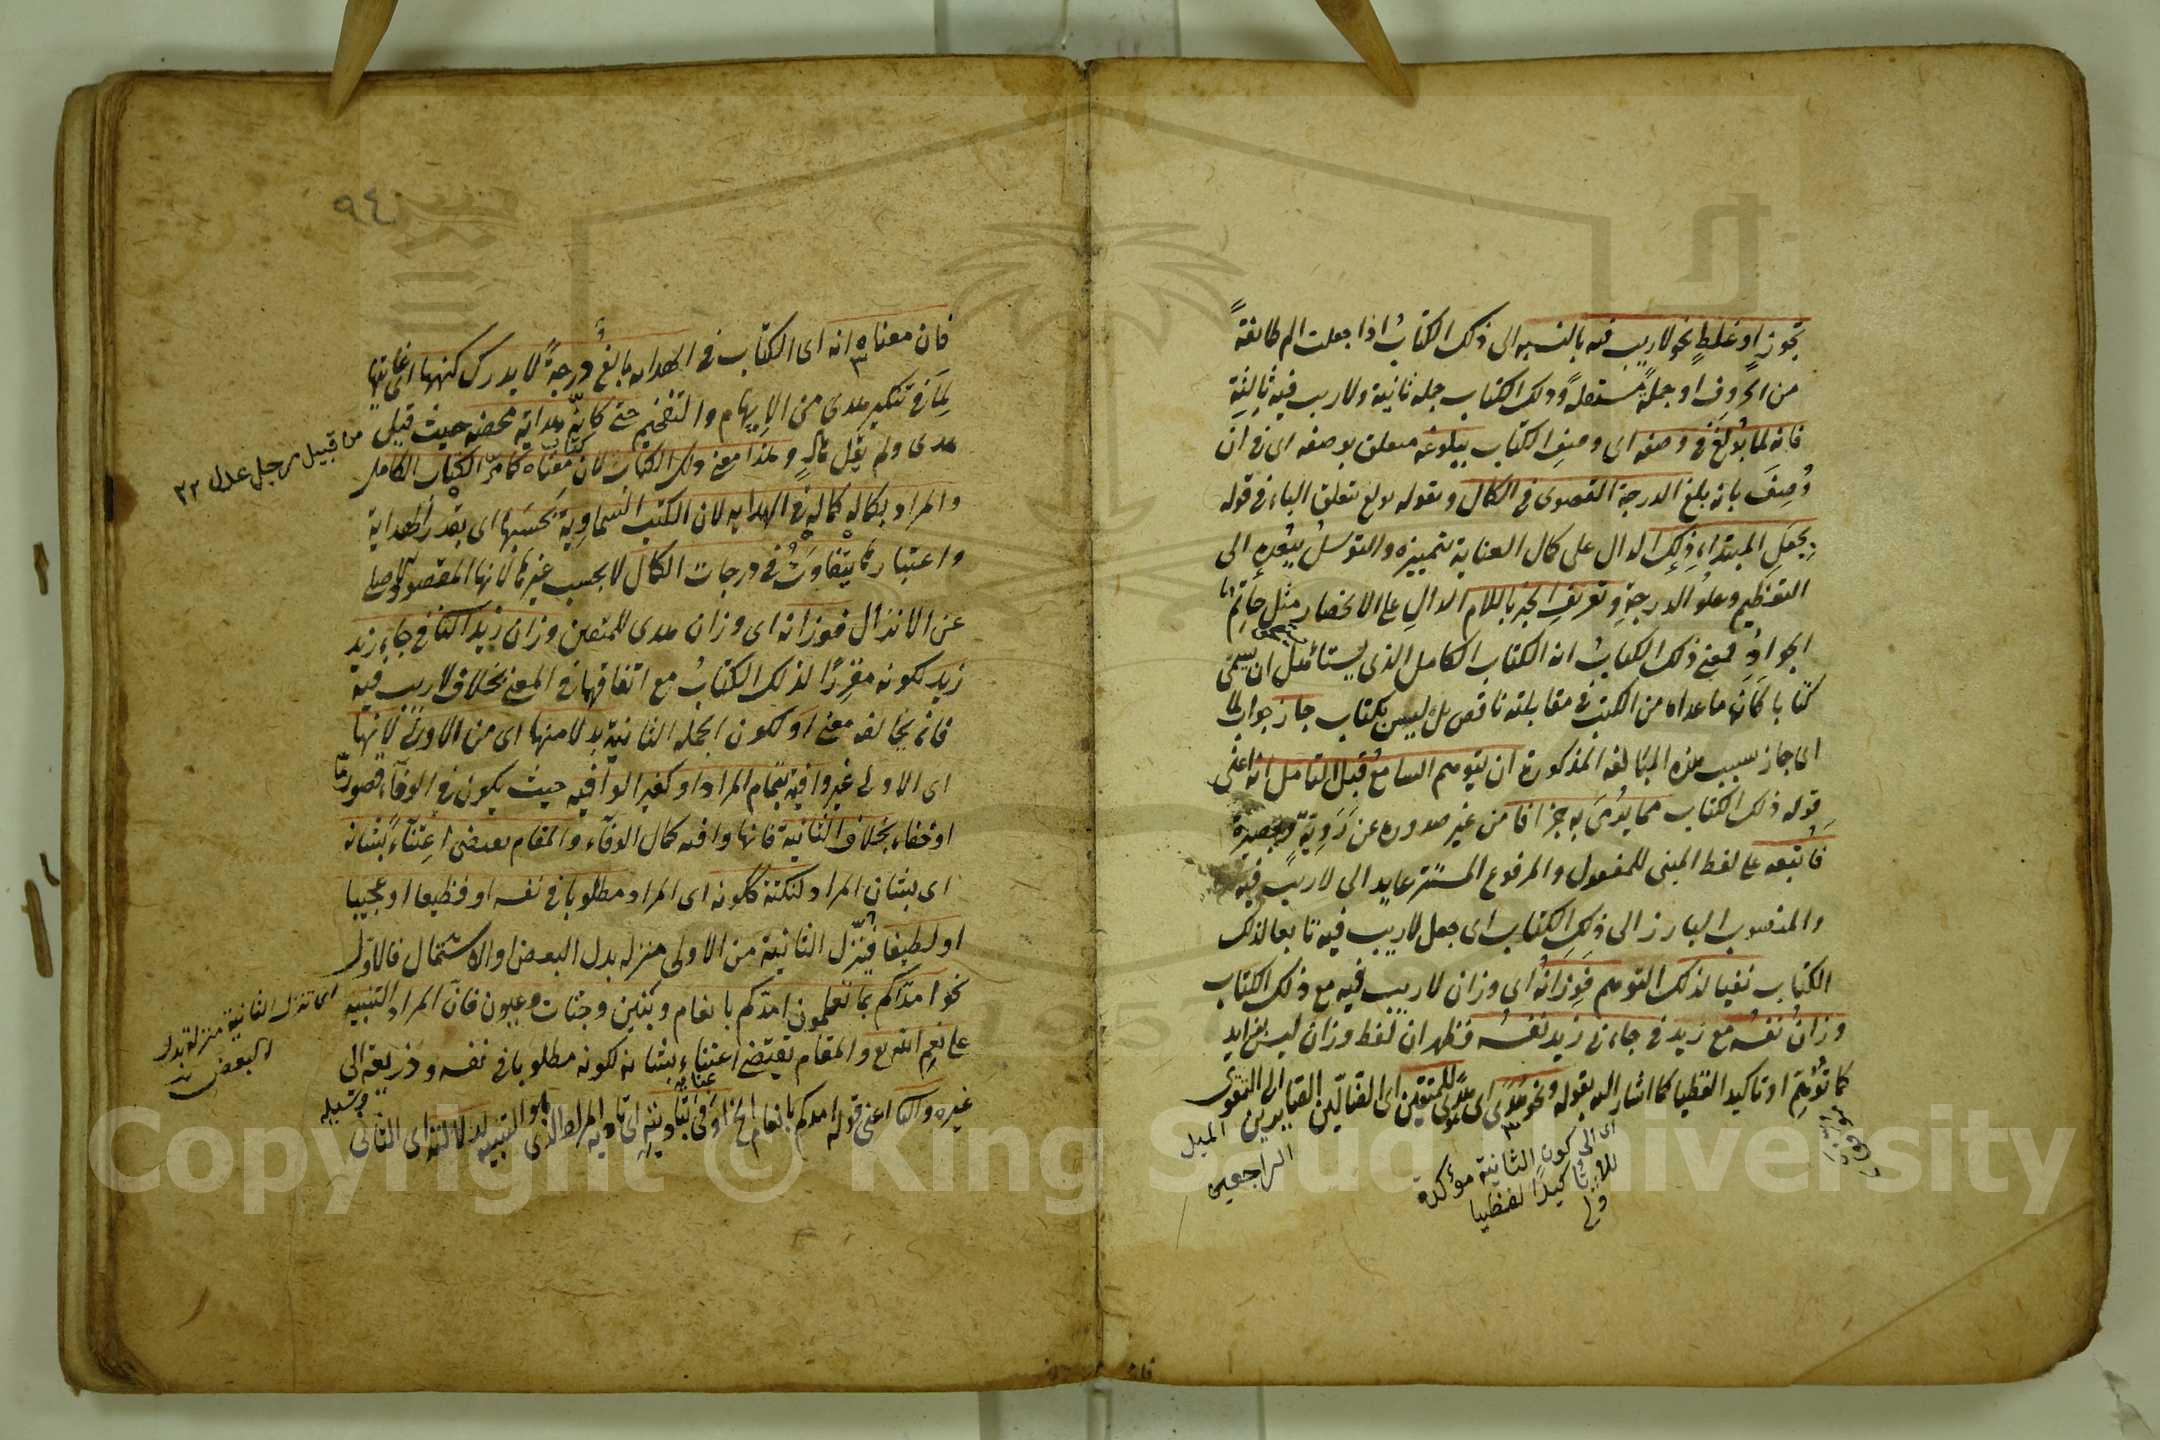 تجوز او غلط نحو لاريب فيه بالنسبه الى ذلك الكتابُ اذا جعلت الم طائفةً
من الحروف او جملةً مستقلةً وذلك الكتاب جمله ثانية ولاريب فيه ثالثةٍ
فانه لما بُولغَ فى وصفه اى وصفِ الكتاب ببلوغه متعلق بوصفه اى فى ان
وُصِفَ بانه بلغ الدرجة القصوى فى الكمال وبقوله بولغ يتعلق الباء فى قوله
بجعل المبتداء ذلك الدال على كمال العناية بتميزه والتوسل ببُعده الى
التعظيم وعلوّ الدرجةِ وتعريفِ الخبر باللام الدالِ على الانحصار مثل حاتم
الجوادُ فمعنى ذلك الكتابُ انه الكتاب الكامل الذى يستأهل ان يسمّى
كتابا كأن ما عداه من الكتب فى مقابلته ناقص بل ليس بكتاب جاز جواب لما
اى جاز بسبب هذه المبالغة المذكورة ان يتوهم السامعُ قبل التامل انه اعنى
قوله ذلك الكتاب مما يُرمَى به جزافا من غير صدوره عن رَوِيةٍ وبصيرة
فاتبعه على لفظ المبنى للمفعول والمرفوع المستتر عايد الى لاريب فيه
والمنصوب البارز الى ذلك الكتاب اى جعل لاريب فيه تابعا لذلك
الكتاب نفيا لذلك التوهم فوِزانُه اى وزان لاريب فيه مع ذلك الكتاب
وزانُ نفسُه مع زيد فى جاءنى زيد نفسُه فظهر ان لفظ وزان ليس بزايد
كما تُوُهِّمَ او تاكيدا لفظيا كما اشار اليه بقوله ونحو هُدًى اى هو هدًى للمتقين اى الضالّين الصايرين الى التقوى
اى الى كون الثانية مؤكدة
للاولى تاكيدًا لفظيا
الميل
الراجعين
٩٤
فان معناه انه اى الكتاب فى الهدايه بالغٌ درجةً لا يدرك كنهها اى غايتها
لما فى تنكير هدى من الابهام والتفخيم حتى كانّه هداية محضه حيث قيل
هدى ولم يقل هادٍ وهذا معنى ذلك الكتاب لان معناه كما مرّ الكتاب الكامل
كتاب
والمراد بكماله كماله فى الهدايه لان الكتب السماوية بحسبها اى بقدر الهداية
واعتبارها يتفاوتُ فى درجات الكمال لا بحسب غيرها لانها المقصود الاصلى
عن الانزال فوزانه اى وزان هدى للمتقين وزان زيد الثانى فى جاءنى زيد
زيد لكونه مقررًا لذلك الكتابُ مع اتفاقهما فى المعنى بخلاف لاريب فيه
فانه يخالفه معنى او لكون الجملة الثانية بدلا منها اى من الاولى لانها
اى الاولى غير وافية بتمام المراد او كغير الوافيه حيث يكون فى الوفاء قصور ما
او خفاء بخلاف الثانية فانها وافيه كمال الوفاء والمقام يقتضى اعتناءً بشانه
اى بشان المراد لنكتة ككونه اى المراد مطلوبا فى نفسه او فظيعا او عجيبا
او لطيفا فتُنزّل الثانية من الاولى منزله بدل البعض او الاشتمال فالاوّل
نحو امدّكم بما تعلمون امدّكم بانعام وبنين وجنات وعيون فان المراد التنبيه
على نِعم الله تع والمقام يقتضى اعتناء بشانه لكونه مطلوبا فى نفسه وذريعة الى
غيره والثانى اعنى قوله امدكم بانعام الخ اوفى بتاديته اى تاديه المراد الذى هو التنبيه لدلالته اى الثانى
من قبيل رجل عدل ٢٢
اى تنزل الثانية منزلة بدل
البعض